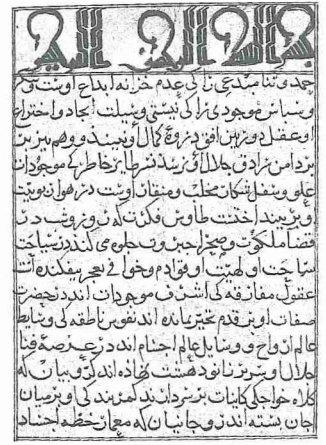 بسم الله الرحمن الرحیم
حمد و ثنا مبدعی را کی عدم خزانه ابداع اوست و
و سپاس موجودی را کی نیستی وسیلت ایجاد و اختراع
او عقل دوربین افق ذروۀ کمال او نبیند و وهم تیزبین
بر دامن سرادق جلال او نرسد نه طایر خاطر کی موجودات
علوی و سفلی شکار مخلب و منقار اوست در هوای هویت
او پر بیند اخت نه طاوس فکرت که
فضا ملکوت و صحرا جبروت جلوه می کند در
ساحت الهیت او قوادم و خوافی عجز بیفکنده است
عقول مفارقه کی اشرف موجودات اند در حضرت
صفات او بر قدم تحیر بمانده اند نفوس ناطقه کی وسایط
عالم ارواح و وسایل عالم اجسام اند در عرصه فنا
جلال او سر بر زانو دهشت نهاده اند کروبیان که
کلاه خواجگی کاینات بر سر دارند کمر بندگی او بر میان
جان بسته اند و جانیان که معمار خطه اجساد